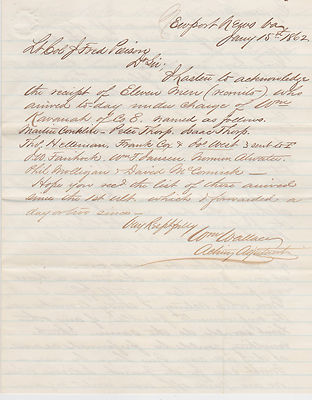 Newport News Va
Jany 15th 1862
Lt Col J Fred Pierson
Dr Sir
I hasten to acknowledge
the receipt of Eleven Men (recruits) who
arrived to-day under charge of Wm
Kavanah of Co E. named as follows.
Martin Conklin - Peter Thorp. Isaac Thorp.
Thos. Helleman, Frank Cox & Jos West 3 sent to I
Wm T. Norman Atwater.
Phil Mulligan & David McCormick -
Hope you recd the list of those arrived
since the 1st ult. which I forwarded a
day or two since -
Very Respfully
Wm Wallace
Acting Adjutant